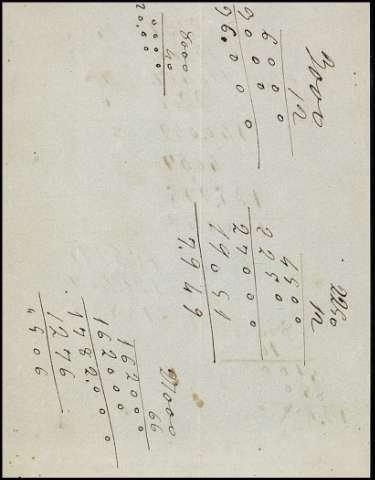 3000
12
6000
36.000
8000
40
2250
12
4500
2250
27000
19051
7.949
27000
66
162000
162000
1782.000
1276
"506